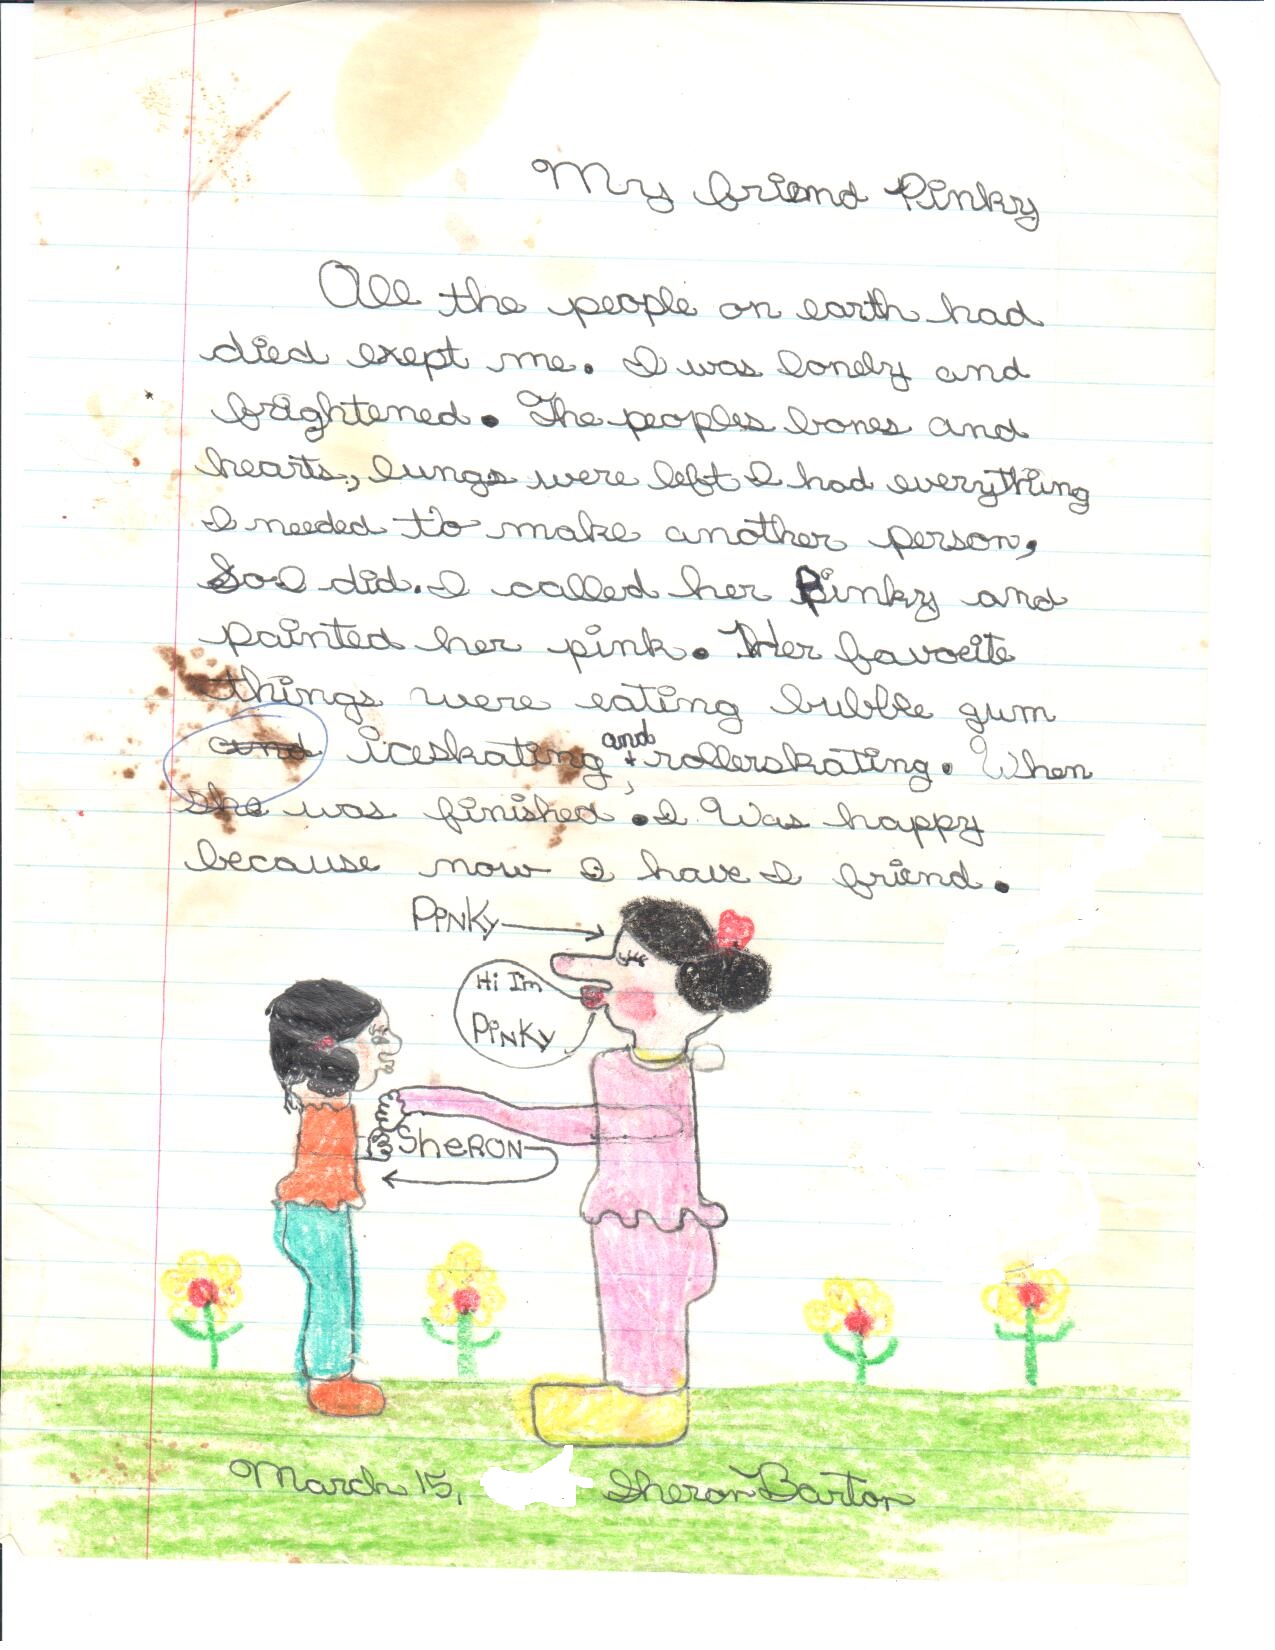 My friend Pinky
All the people on earth had
died exept me. I was lonely and
frightened. The peoples bones and
hearts, lungs were left I had everything
I needed to make another person,
So I did. I called her Pinky and
painted her pink. Her favorite
things were eating bubble gum
and iceskating, and + rollerskating. When
she was finished. I Was happy
because now I have I friend.
PiNKy
Hi I'm
PiNKy
SheRON
March 15, Sheron Barton